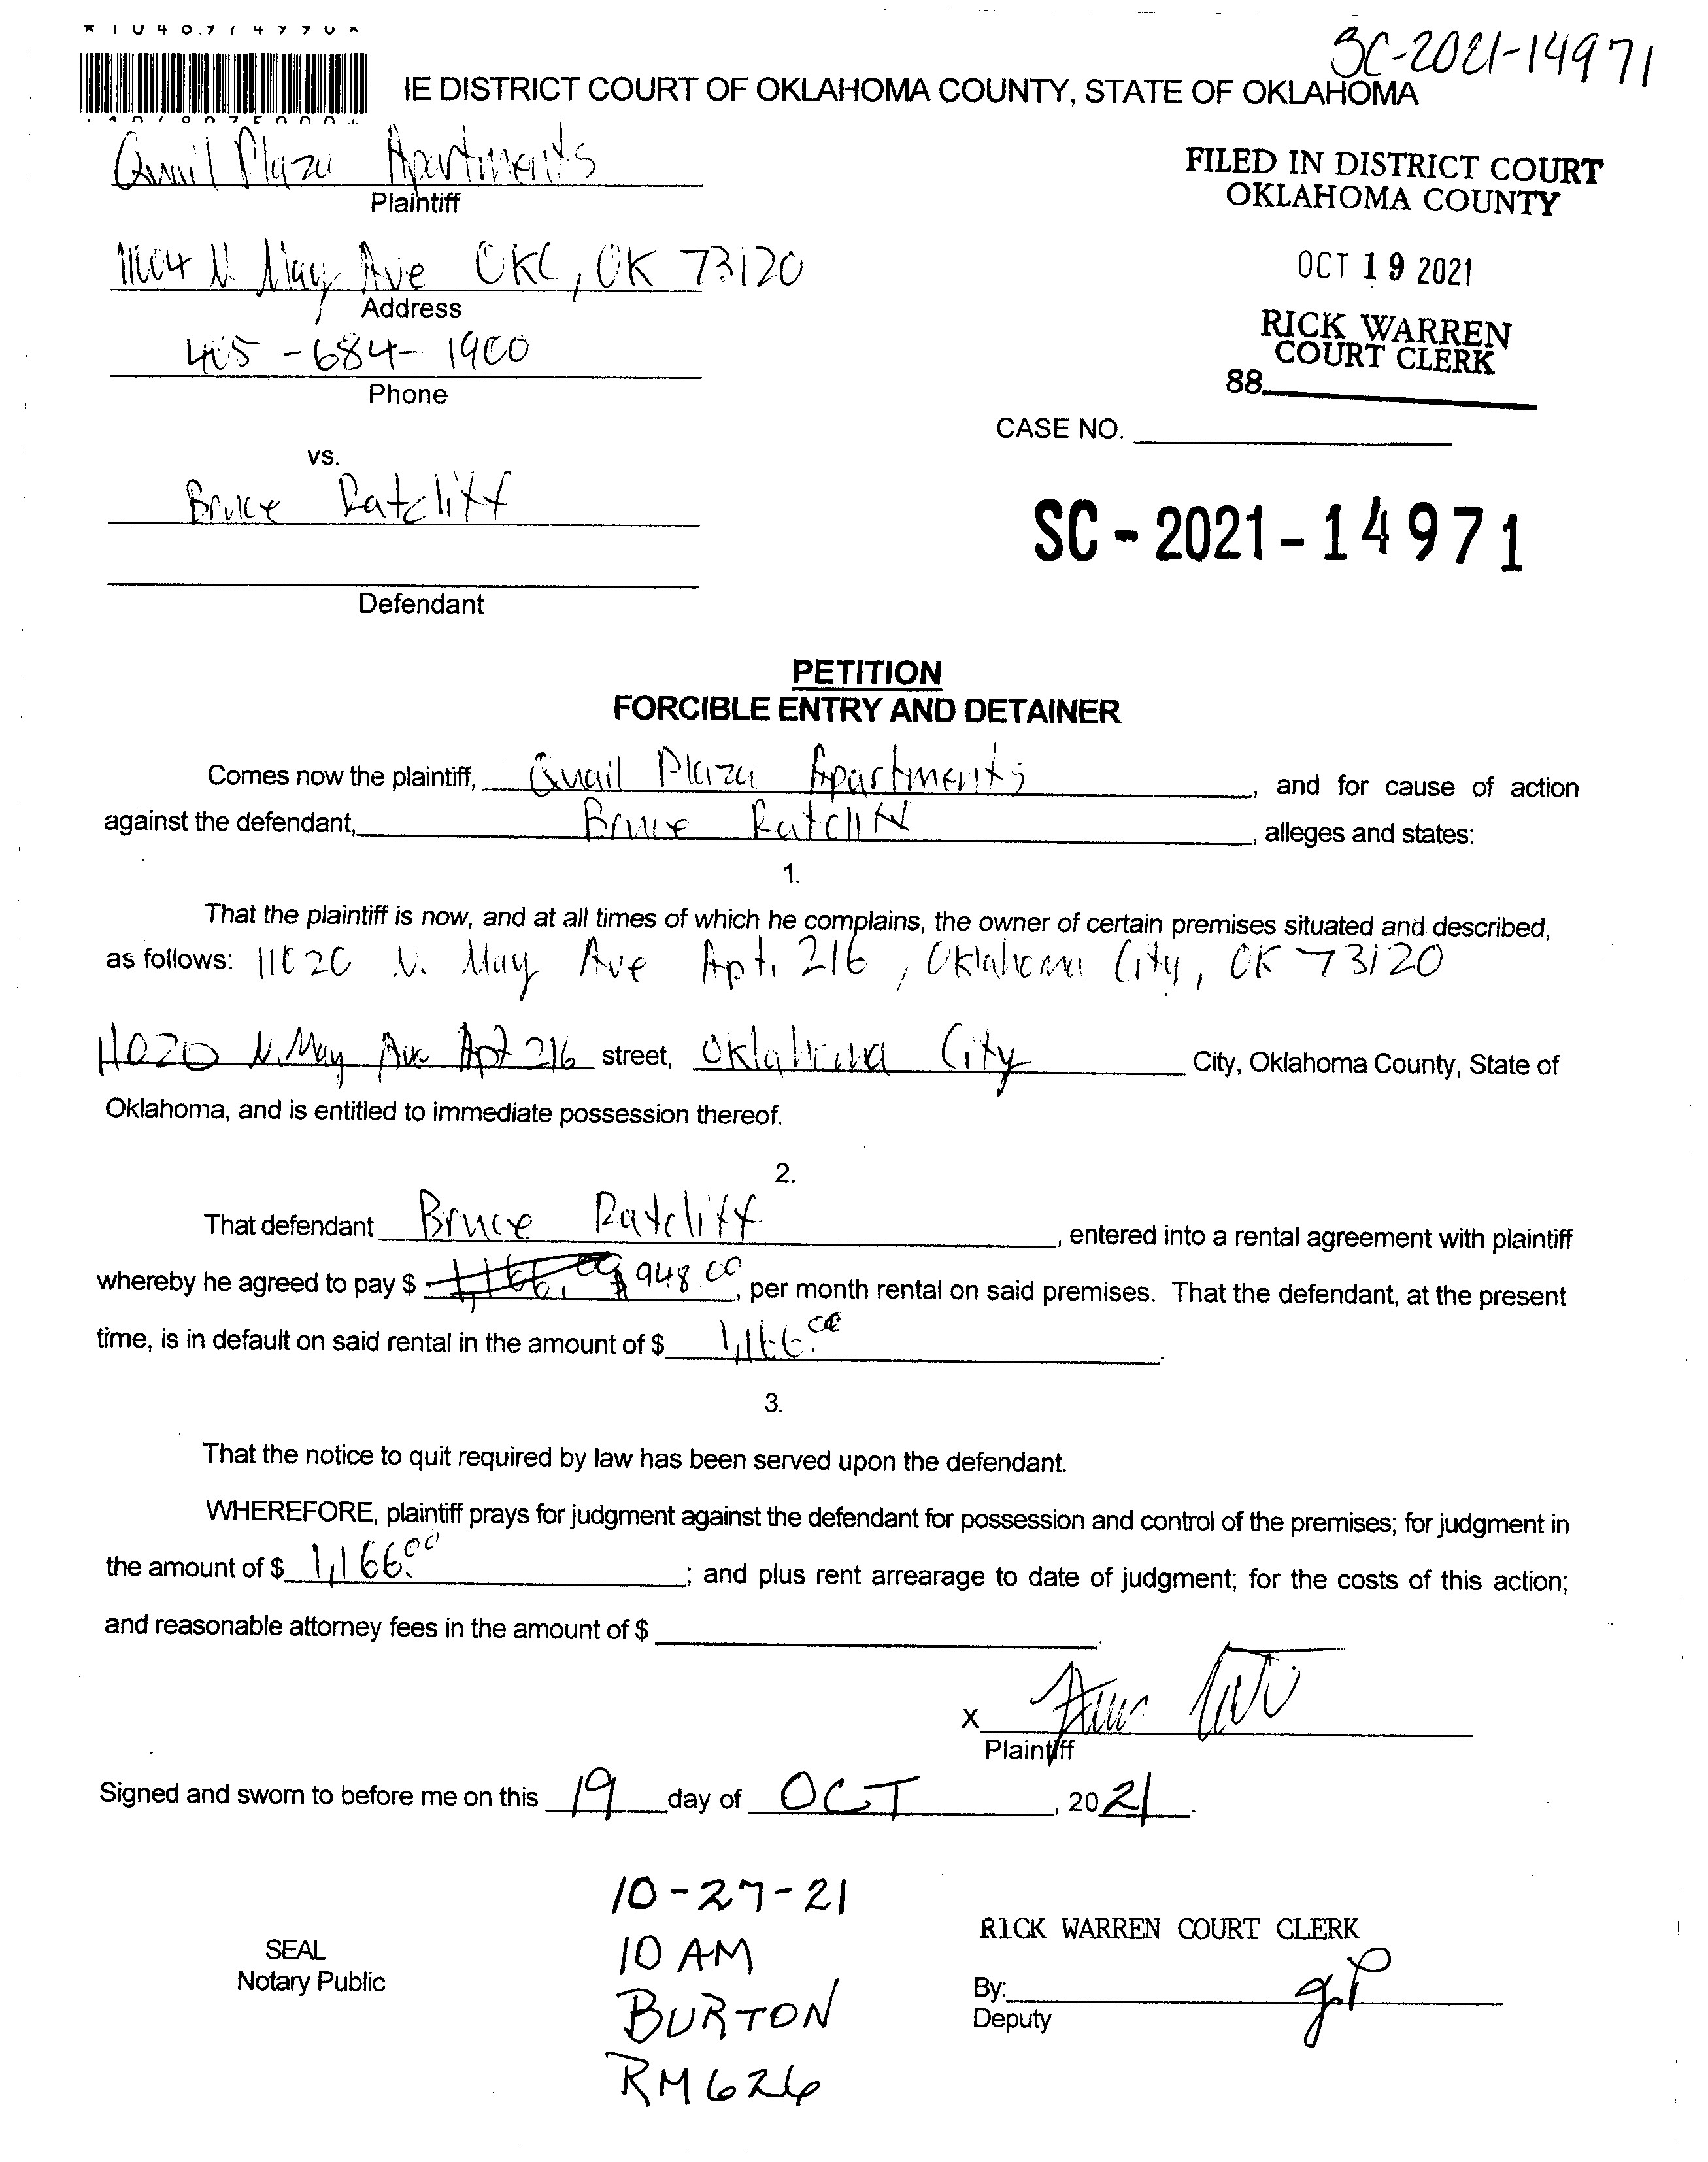 SC-2021-14971
IE DISTRICT COURT OF OKLAHOMA COUNTY, STATE OF OKLAHOMA
Quail Plaza Apartments
Plaintiff
FILED IN DISTRICT COURT
OKLAHOMA COUNTY
11004 N. May Ave OKC, OK 73120
Address
OCT 19 2021
405-684-1900
Phone
RICK WARREN
COURT CLERK
88
CASE NO.
vs.
Bruce Ratcliff
SC-2021-14971
Defendant
PETITION
FORCIBLE ENTRY AND DETAINER
Comes now the plaintiff, Quail Plaza Apartments, and for cause of action
against the defendant, Bruce Ratcliff, alleges and states:
1.
That the plaintiff is now, and at all times of which he complains, the owner of certain premises situated and described,
as follows: 11020 N. May Ave Apt. 216, Oklahoma City, OK 73120
11020 N. May Ave Apt 216 street, Oklahoma City City, Oklahoma County, State of
Oklahoma, and is entitled to immediate possession thereof.
2.
That defendant Bruce Ratcliff, entered into a rental agreement with plaintiff
whereby he agreed to pay $ 1,166.00 $948.00, per month rental on said premises. That the defendant, at the present
time, is in default on said rental in the amount of $ 1,166.00.
3.
That the notice to quit required by law has been served upon the defendant.
WHEREFORE, plaintiff prays for judgment against the defendant for possession and control of the premises; for judgment in
the amount of $ 1,166.00; and plus rent arrearage to date of judgment; for the costs of this action;
and reasonable attorney fees in the amount of $ .
X
Plaintiff
Signed and sworn to before me on this 19 day of OCT, 2021.
10-27-21
10 AM
BURTON
RM 626
SEAL
Notary Public
RICK WARREN COURT CLERK
By:
Deputy